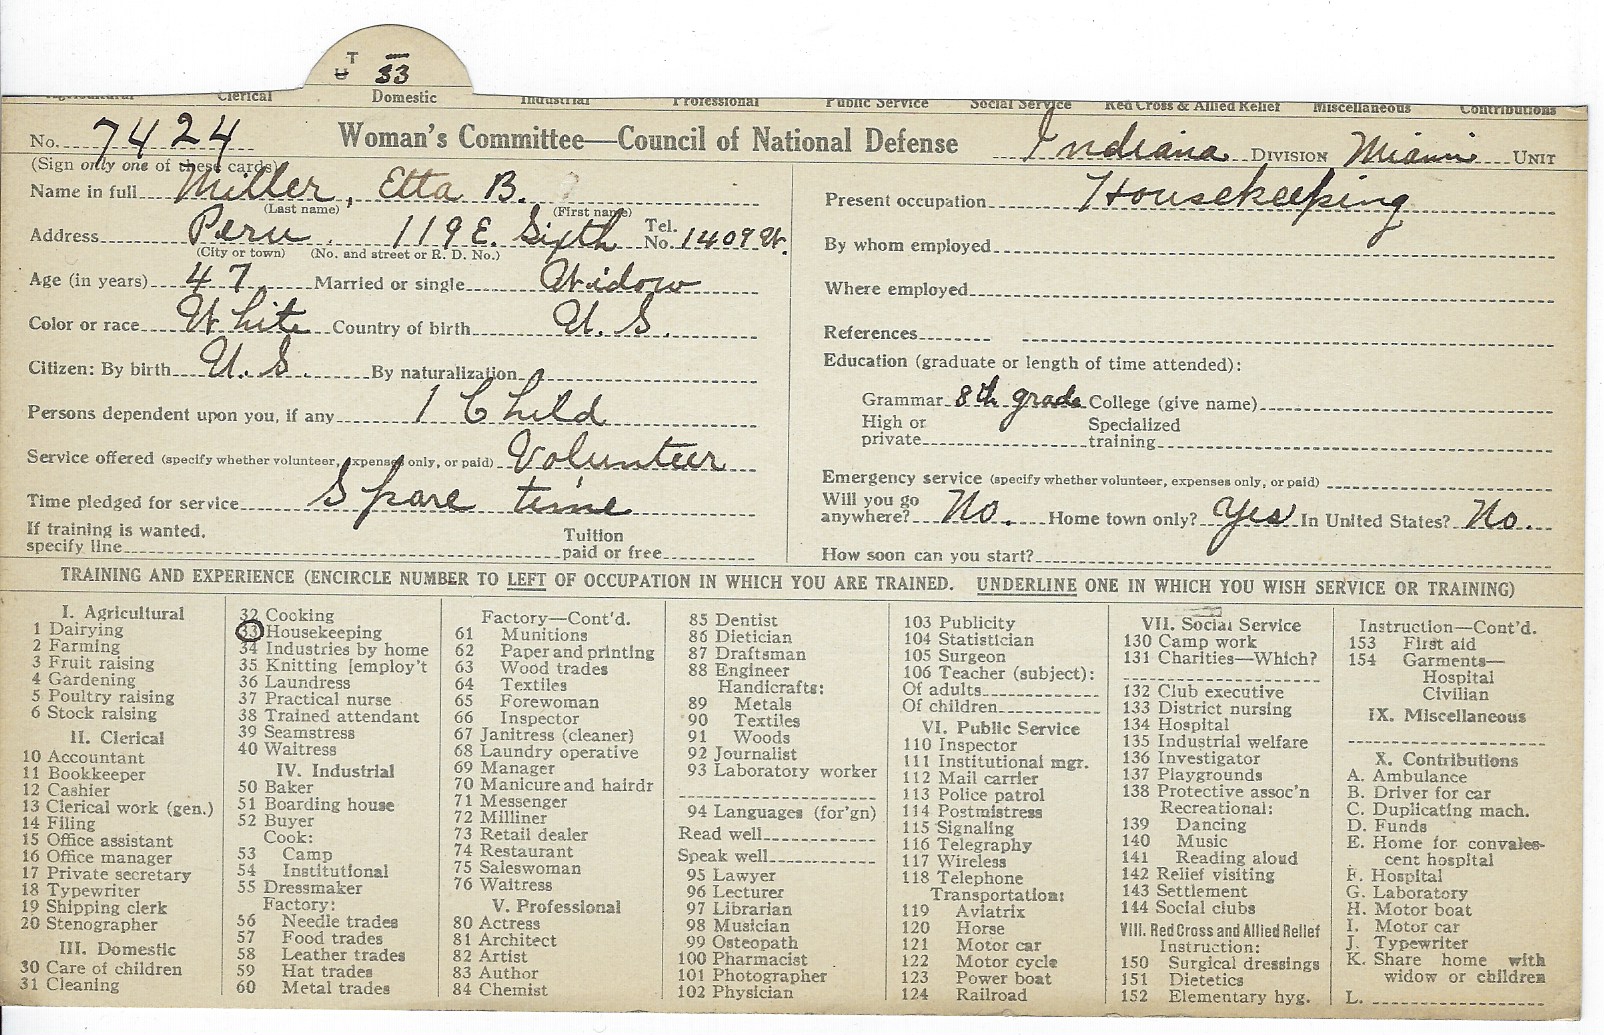 T
U 33
Agricultural Clerical Domestic Industrial Professional Public Service Social Service Red Cross & Allied Relief Miscellaneous Contributions
No. 7424 Woman's Committee—Council of National Defense Indiana DIVISION Miami UNIT
(Sign only one of these cards)
Name in full Miller, Etta B.
(Last name) (First name)
Address Peru, 119 E. Sixth Tel. No. 1409 W.
(City or town) (No. and street or R. D. No.)
Age (in years) 47 Married or single Widow
Color or race White Country of birth U. S.
Citizen: By birth U. S. By naturalization
Persons dependent upon you, if any 1 Child
Service offered (specify whether volunteer, expenses only, or paid) Volunteer
Time pledged for service Spare time
If training is wanted, specify line Tuition paid or free
Present occupation Housekeeping
By whom employed
Where employed
References
Education (graduate or length of time attended):
Grammar 8th grade College (give name)
High or private Specialized training
Emergency service (specify whether volunteer, expenses only, or paid)
Will you go anywhere? No. Home town only? Yes In United States? No.
How soon can you start?
TRAINING AND EXPERIENCE (ENCIRCLE NUMBER TO LEFT OF OCCUPATION IN WHICH YOU ARE TRAINED. UNDERLINE ONE IN WHICH YOU WISH SERVICE OR TRAINING)
I. Agricultural
1 Dairying
2 Farming
3 Fruit raising
4 Gardening
5 Poultry raising
6 Stock raising
II. Clerical
10 Accountant
11 Bookkeeper
12 Cashier
13 Clerical work (gen.)
14 Filing
15 Office assistant
16 Office manager
17 Private secretary
18 Typewriter
19 Shipping clerk
20 Stenographer
III. Domestic
30 Care of children
31 Cleaning
32 Cooking
33 Housekeeping
34 Industries by home
35 Knitting [employ't
36 Laundress
37 Practical nurse
38 Trained attendant
39 Seamstress
40 Waitress
IV. Industrial
50 Baker
51 Boarding house
52 Buyer
Cook:
53 Camp
54 Institutional
55 Dressmaker
Factory:
56 Needle trades
57 Food trades
58 Leather trades
59 Hat trades
60 Metal trades
Factory—Cont'd.
61 Munitions
62 Paper and printing
63 Wood trades
64 Textiles
65 Forewoman
66 Inspector
67 Janitress (cleaner)
68 Laundry operative
69 Manager
70 Manicure and hairdr
71 Messenger
72 Milliner
73 Retail dealer
74 Restaurant
75 Saleswoman
76 Waitress
V. Professional
80 Actress
81 Architect
82 Artist
83 Author
84 Chemist
85 Dentist
86 Dietician
87 Draftsman
88 Engineer
Handicrafts:
89 Metals
90 Textiles
91 Woods
92 Journalist
93 Laboratory worker
94 Languages (for'gn)
Read well
Speak well
95 Lawyer
96 Lecturer
97 Librarian
98 Musician
99 Osteopath
100 Pharmacist
101 Photographer
102 Physician
103 Publicity
104 Statistician
105 Surgeon
106 Teacher (subject):
Of adults
Of children
VI. Public Service
110 Inspector
111 Institutional mgr.
112 Mail carrier
113 Police patrol
114 Postmistress
115 Signaling
116 Telegraphy
117 Wireless
118 Telephone
Transportation:
119 Aviatrix
120 Horse
121 Motor car
122 Motor cycle
123 Power boat
124 Railroad
VII. Social Service
130 Camp work
131 Charities—Which?
132 Club executive
133 District nursing
134 Hospital
135 Industrial welfare
136 Investigator
137 Playgrounds
138 Protective assoc'n
Recreational:
139 Dancing
140 Music
141 Reading aloud
142 Relief visiting
143 Settlement
144 Social clubs
VIII. Red Cross and Allied Relief
Instruction:
150 Surgical dressings
151 Dietetics
152 Elementary hyg.
Instruction—Cont'd.
153 First aid
154 Garments—
Hospital
Civilian
IX. Miscellaneous
X. Contributions
A. Ambulance
B. Driver for car
C. Duplicating mach.
D. Funds
E. Home for convales-
cent hospital
F. Hospital
G. Laboratory
H. Motor boat
I. Motor car
J. Typewriter
K. Share home with
widow or children
L.